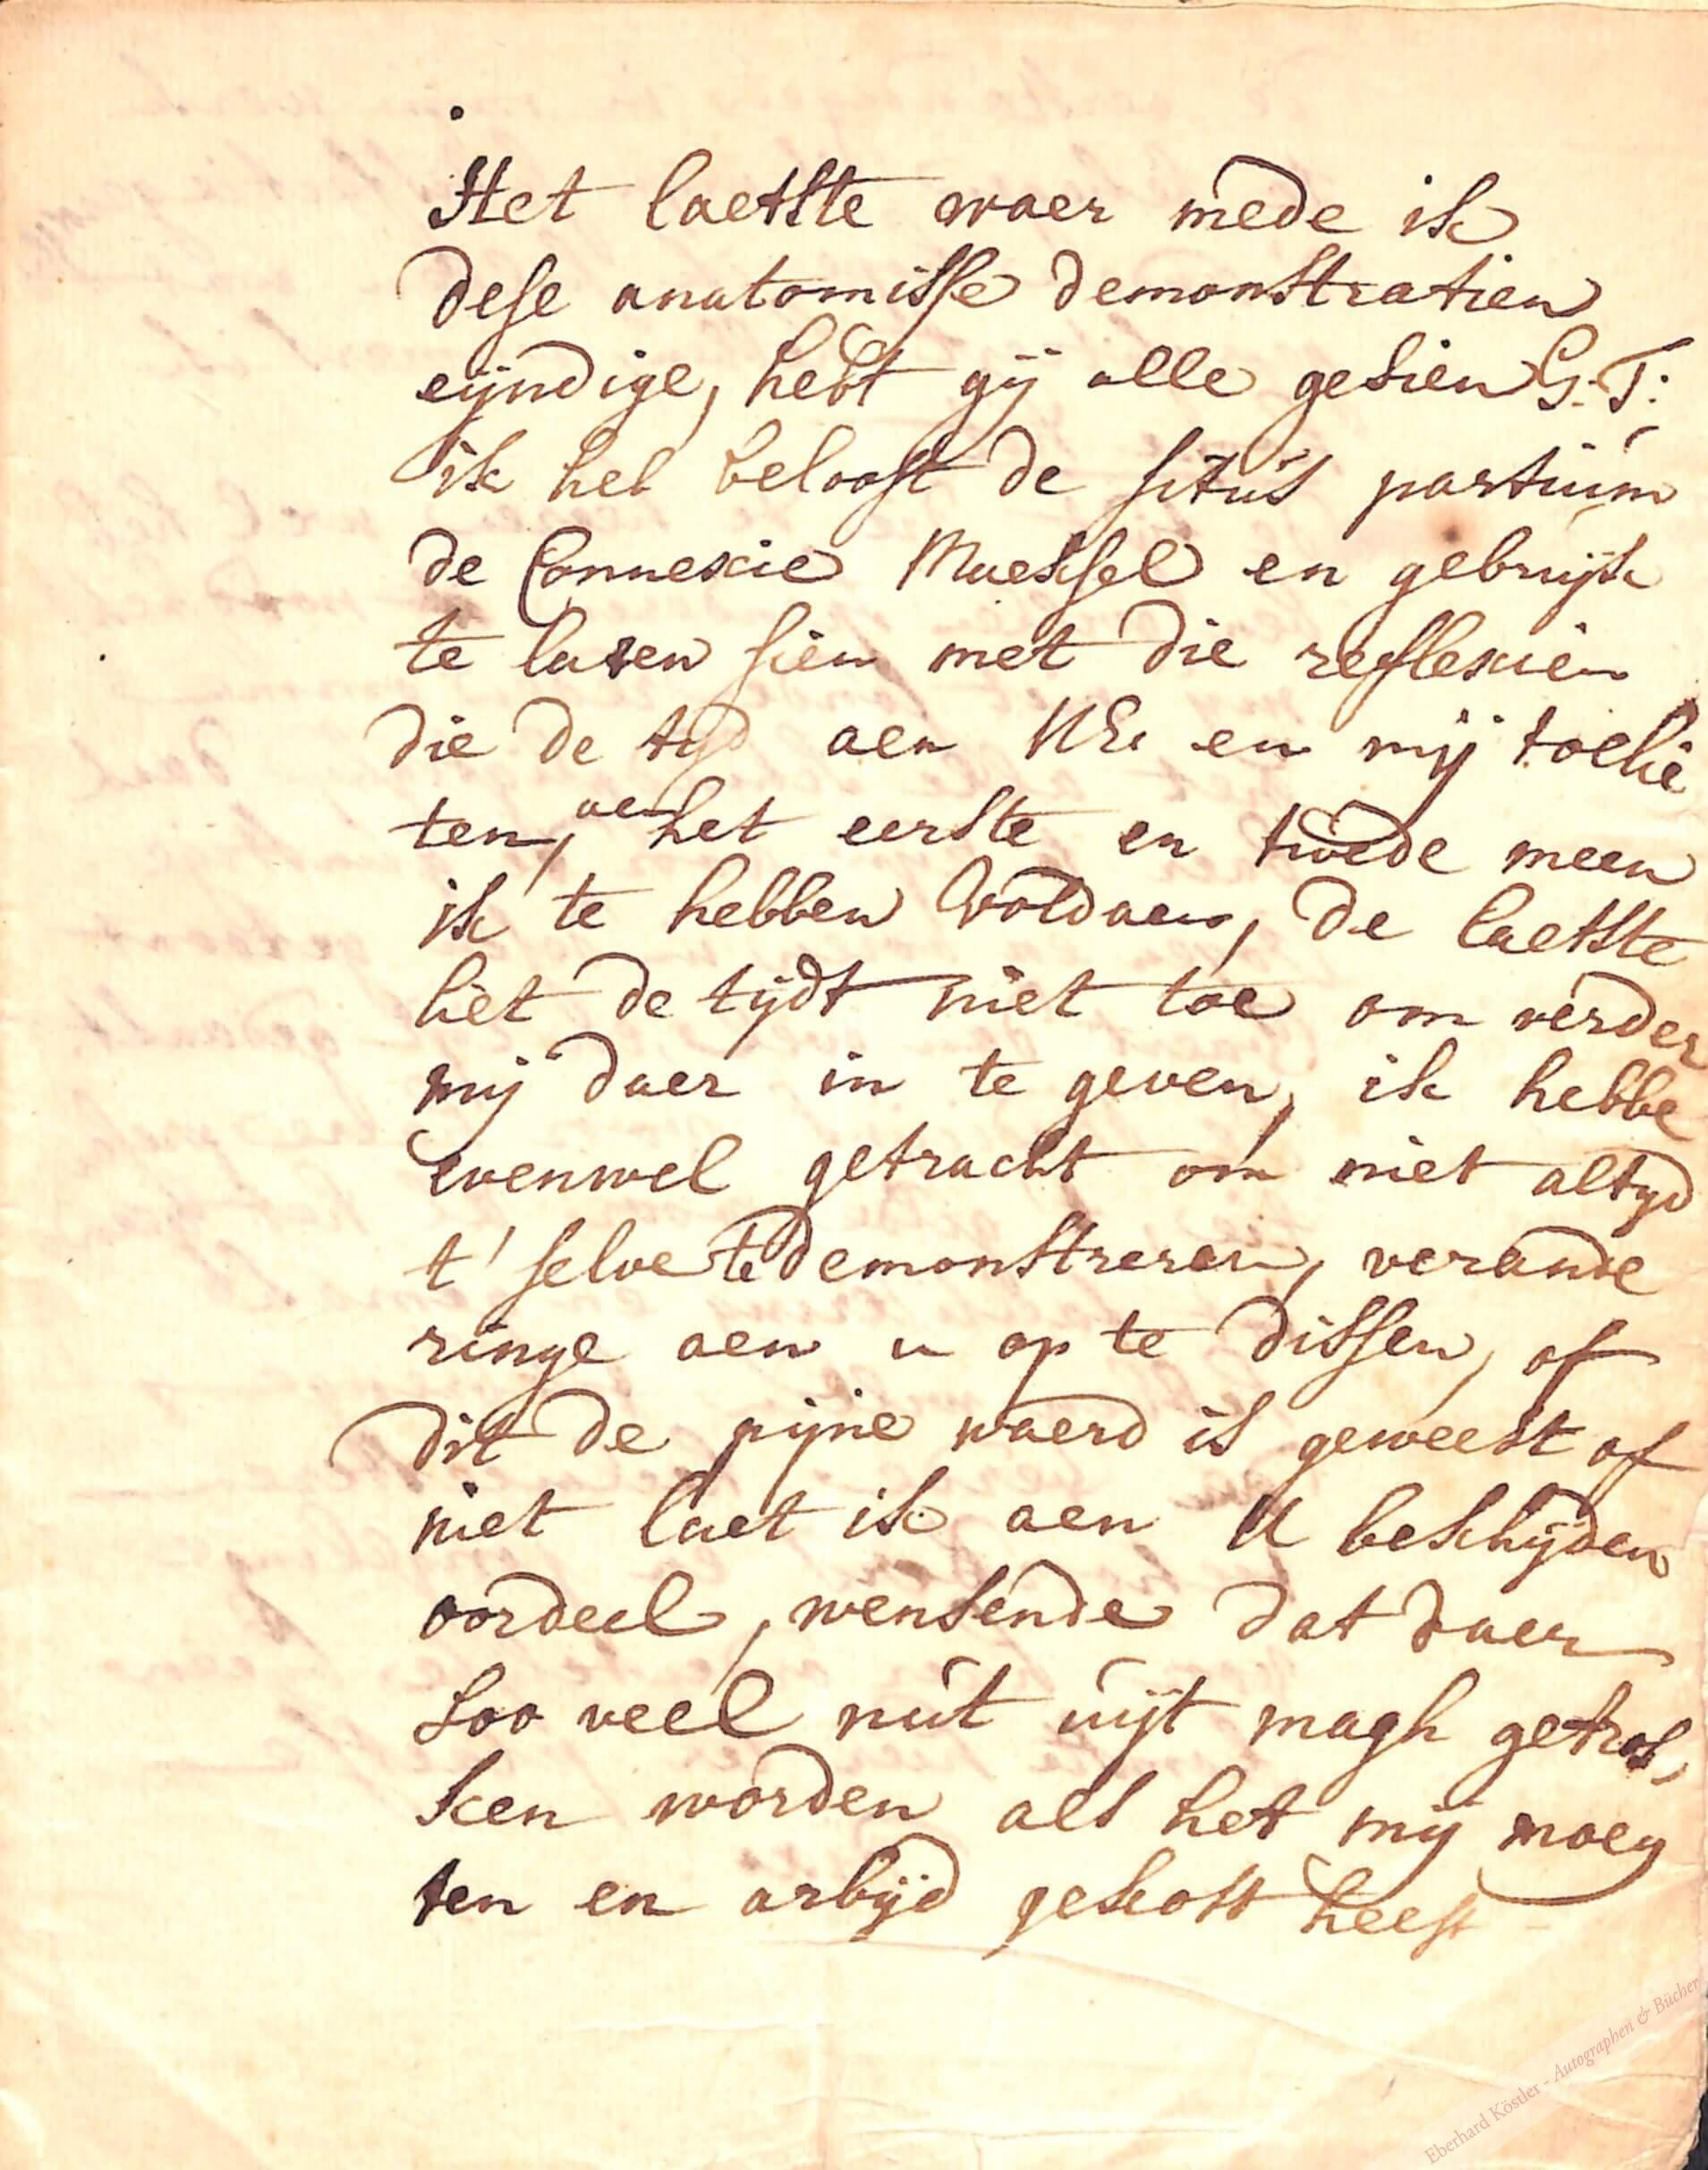 Het laetste waer mede ik
dese anatomisse demonstratien
eyndige, hebt gij alle gesien G. T:
ik heb belooft de situs partium
de Connexie Maeksel en gebruijk
te laten sien met die reflexien
die de tyd aen UE: en mij toelie
ten, aen het eerste en twede meen
ik te hebben Voldaen, de laetste
liet de tijdt niet toe om verder
mij daer in te geven, ik hebbe
evenwel getracht om niet altyd
t' selve te demonstreren, verande
ringe aen u op te dissen, of
dit de pijne waerd is geweest of
niet laet ik aen U beschijden
oordeel, wensende dat daer
soo veel nut uijt magh getrok,
ken worden als het mij moey
ten en arbijd gekost heeft
Eberhard Köstler - Autographen & Bücher